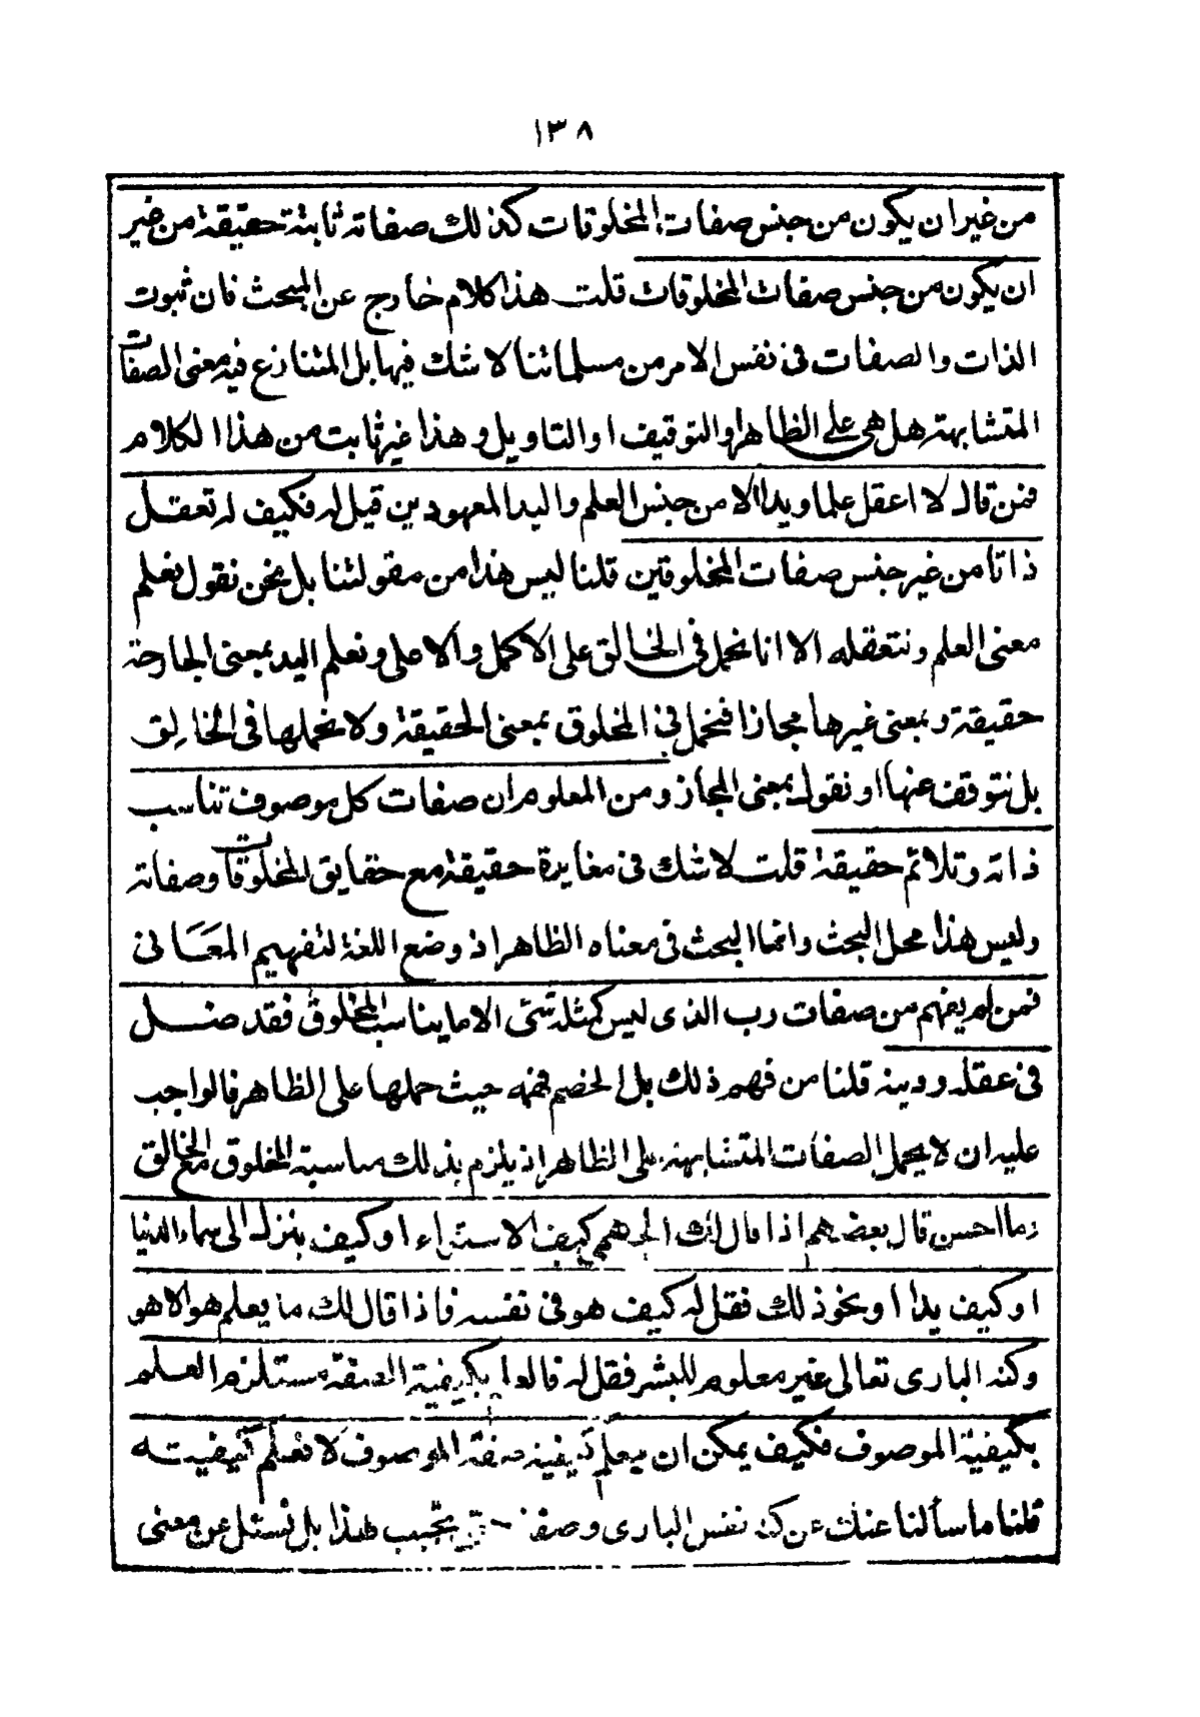 ١٣٨
من غير ان يكون من جنس صفات المخلوقات كذلك صفاته ثابتة حقيقة من غير
ان يكون من جنس صفات المخلوقات قلت هذا كلام خارج عن المبحث فان ثبوت
الذات والصفات فى نفس الامر من مسلماتنا لا شك فيها بل المتنازع فيه معنى الصفات
المتشابهة هل هى على الظاهر او التوقيف او التاويل وهذا غير ثابت من هذا الكلام
فمن قال لا اعقل علما ويدا الا من جنس العلم واليد المعهودين قيل له فكيف له تعقل
ذاتا من غير جنس صفات المخلوقين قلنا ليس هذا من مقولتنا بل نحن نقول نعلم
معنى العلم ونتعقله الا انا نحمل فى الخالق على الاكمل والاعلى ونعلم اليد بمعنى الجارحة
حقيقة وبمعنى غيرها مجازا فنحمل فى المخلوق بمعنى الحقيقة ولا نحملها فى الخالق
بل نتوقف عنها او نقول بمعنى المجاز ومن المعلوم ان صفات كل موصوف تناسب
ذاته وتلائم حقيقة قلت لا شك فى مغايرة حقيقة مع حقايق المخلوقات وصفاته
وليس هذا محل البحث وانما البحث فى معناه الظاهر اذ وضع اللغة لتفهيم المعانى
فمن لم يفهم من صفات رب الذى ليس كمثله شئى الا ما يناسب المخلوق فقد ضل
فى عقله ودينه قلنا من فهم ذلك بل الخصم فهمه حيث حملها على الظاهر فالواجب
عليه ان لا يحمل الصفات المتشابهة على الظاهر اذ يلزم بذلك مناسبة المخلوق مع الخالق
وما احسن قال بعضهم اذا قال لك الجهمى كيف الاستواء او كيف ينزل الى سماء الدنيا
او كيف يدا او نحو ذلك فقل له كيف هو فى نفسه فاذا قال لك ما يعلم هو الا هو
وكنه البارى تعالى غير معلوم للبشر فقل له فالعلم بكيفية الصفة مستلزم العلم
بكيفية الموصوف فكيف يمكن ان يعلم كيفية صفة الموصوف لا تعلم كيفيته
قلنا ما سألنا عنك عن كنه نفس البارى وصفته تجيب هذا بل نسئل عن معنى